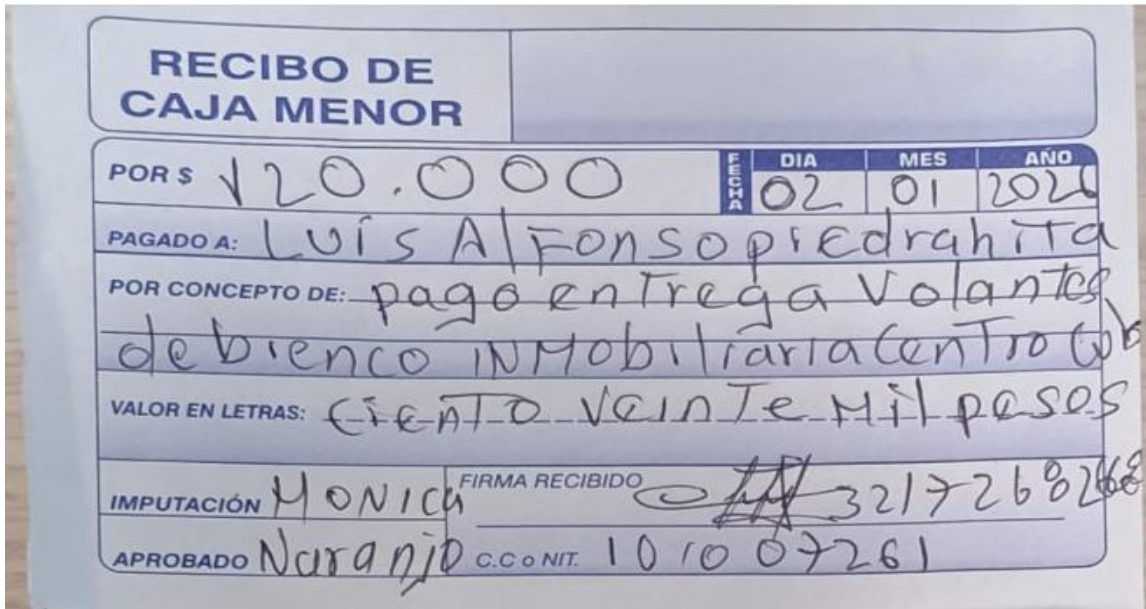 RECIBO DE
CAJA MENOR
POR $ 120.000 FECHA DIA 02 MES 01 AÑO 2026
PAGADO A: LUIS AlFonso piEdrahita
POR CONCEPTO DE: pago enTrega Volantes
de bienco INMobiliaria CenTro
VALOR EN LETRAS: CiENTO VeinTe Mil pesos
IMPUTACIÓN MONICA FIRMA RECIBIDO
APROBADO Naranjo C.C o NIT. 101007261